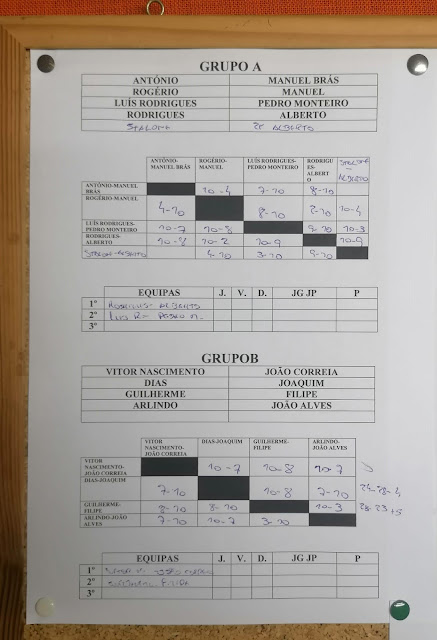 GRUPO A
ANTÓNIO MANUEL BRÁS
ROGÉRIO MANUEL
LUÍS RODRIGUES PEDRO MONTEIRO
RODRIGUES ALBERTO
ALBERTO
ANTÓNIO-MANUEL BRÁS ROGÉRIO-MANUEL LUÍS RODRIGUES-PEDRO MONTEIRO RODRIGUES-ALBERTO
ANTÓNIO-MANUEL BRÁS 10-4 7-10 8-10
ROGÉRIO-MANUEL 4-10 8-10 2-10 10-4
LUÍS RODRIGUES-PEDRO MONTEIRO 10-7 10-8 9-10 10-3
RODRIGUES-ALBERTO 10-8 10-2 10-9 10-9
4-10 3-10 9-10
EQUIPAS J. V. D. JG JP P
1º RODRIGUES-ALBERTO
2º LUIS R- PEDRO M.
3º
GRUPOB
VITOR NASCIMENTO JOÃO CORREIA
DIAS JOAQUIM
GUILHERME FILIPE
ARLINDO JOÃO ALVES
VITOR NASCIMENTO-JOÃO CORREIA DIAS-JOAQUIM GUILHERME-FILIPE ARLINDO-JOÃO ALVES
VITOR NASCIMENTO-JOÃO CORREIA 10-7 10-8 10-7
DIAS-JOAQUIM 7-10 10-8 7-10
GUILHERME-FILIPE 8-10 8-10 10-3
ARLINDO-JOÃO ALVES 7-10 10-7 3-10
EQUIPAS J. V. D. JG JP P
1º
2º
3º